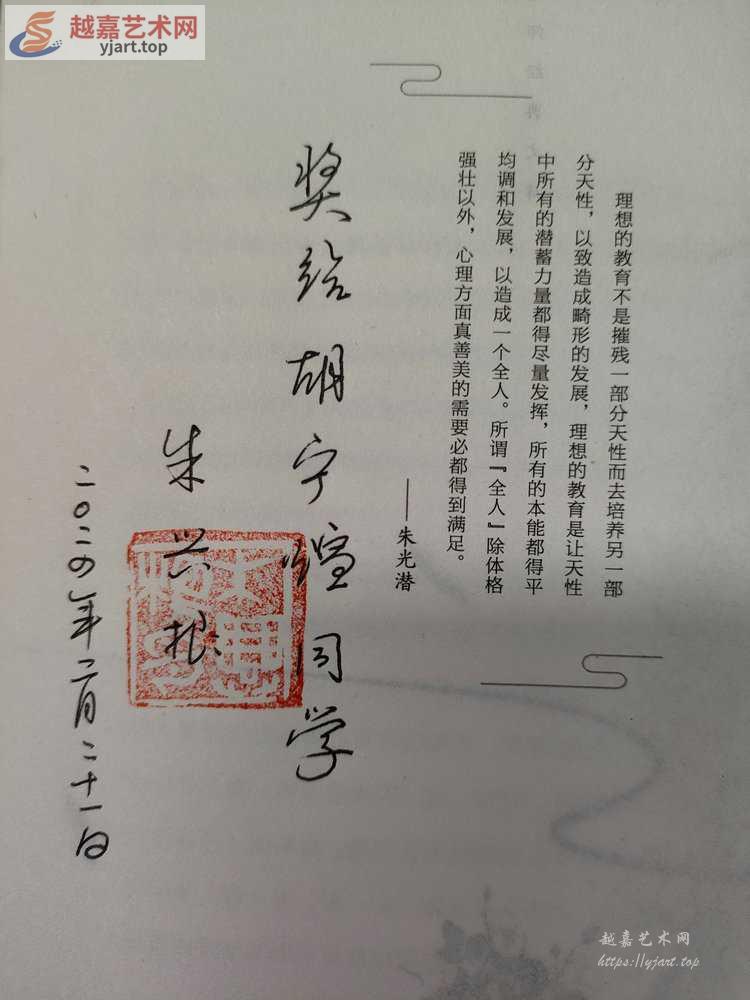 越嘉艺术网
yjart.top
理想的教育不是摧残一部分天性而去培养另一部
分天性，以致造成畸形的发展，理想的教育是让天性
中所有的潜蓄力量都得尽量发挥，所有的本能都得平
均调和发展，以造成一个全人。所谓『全人』除体格
强壮以外，心理方面真善美的需要必都得到满足。
——朱光潜
奖给胡宁煊同学
朱兴根
二〇二四年二月二十一日
越嘉艺术网
https://yjart.top